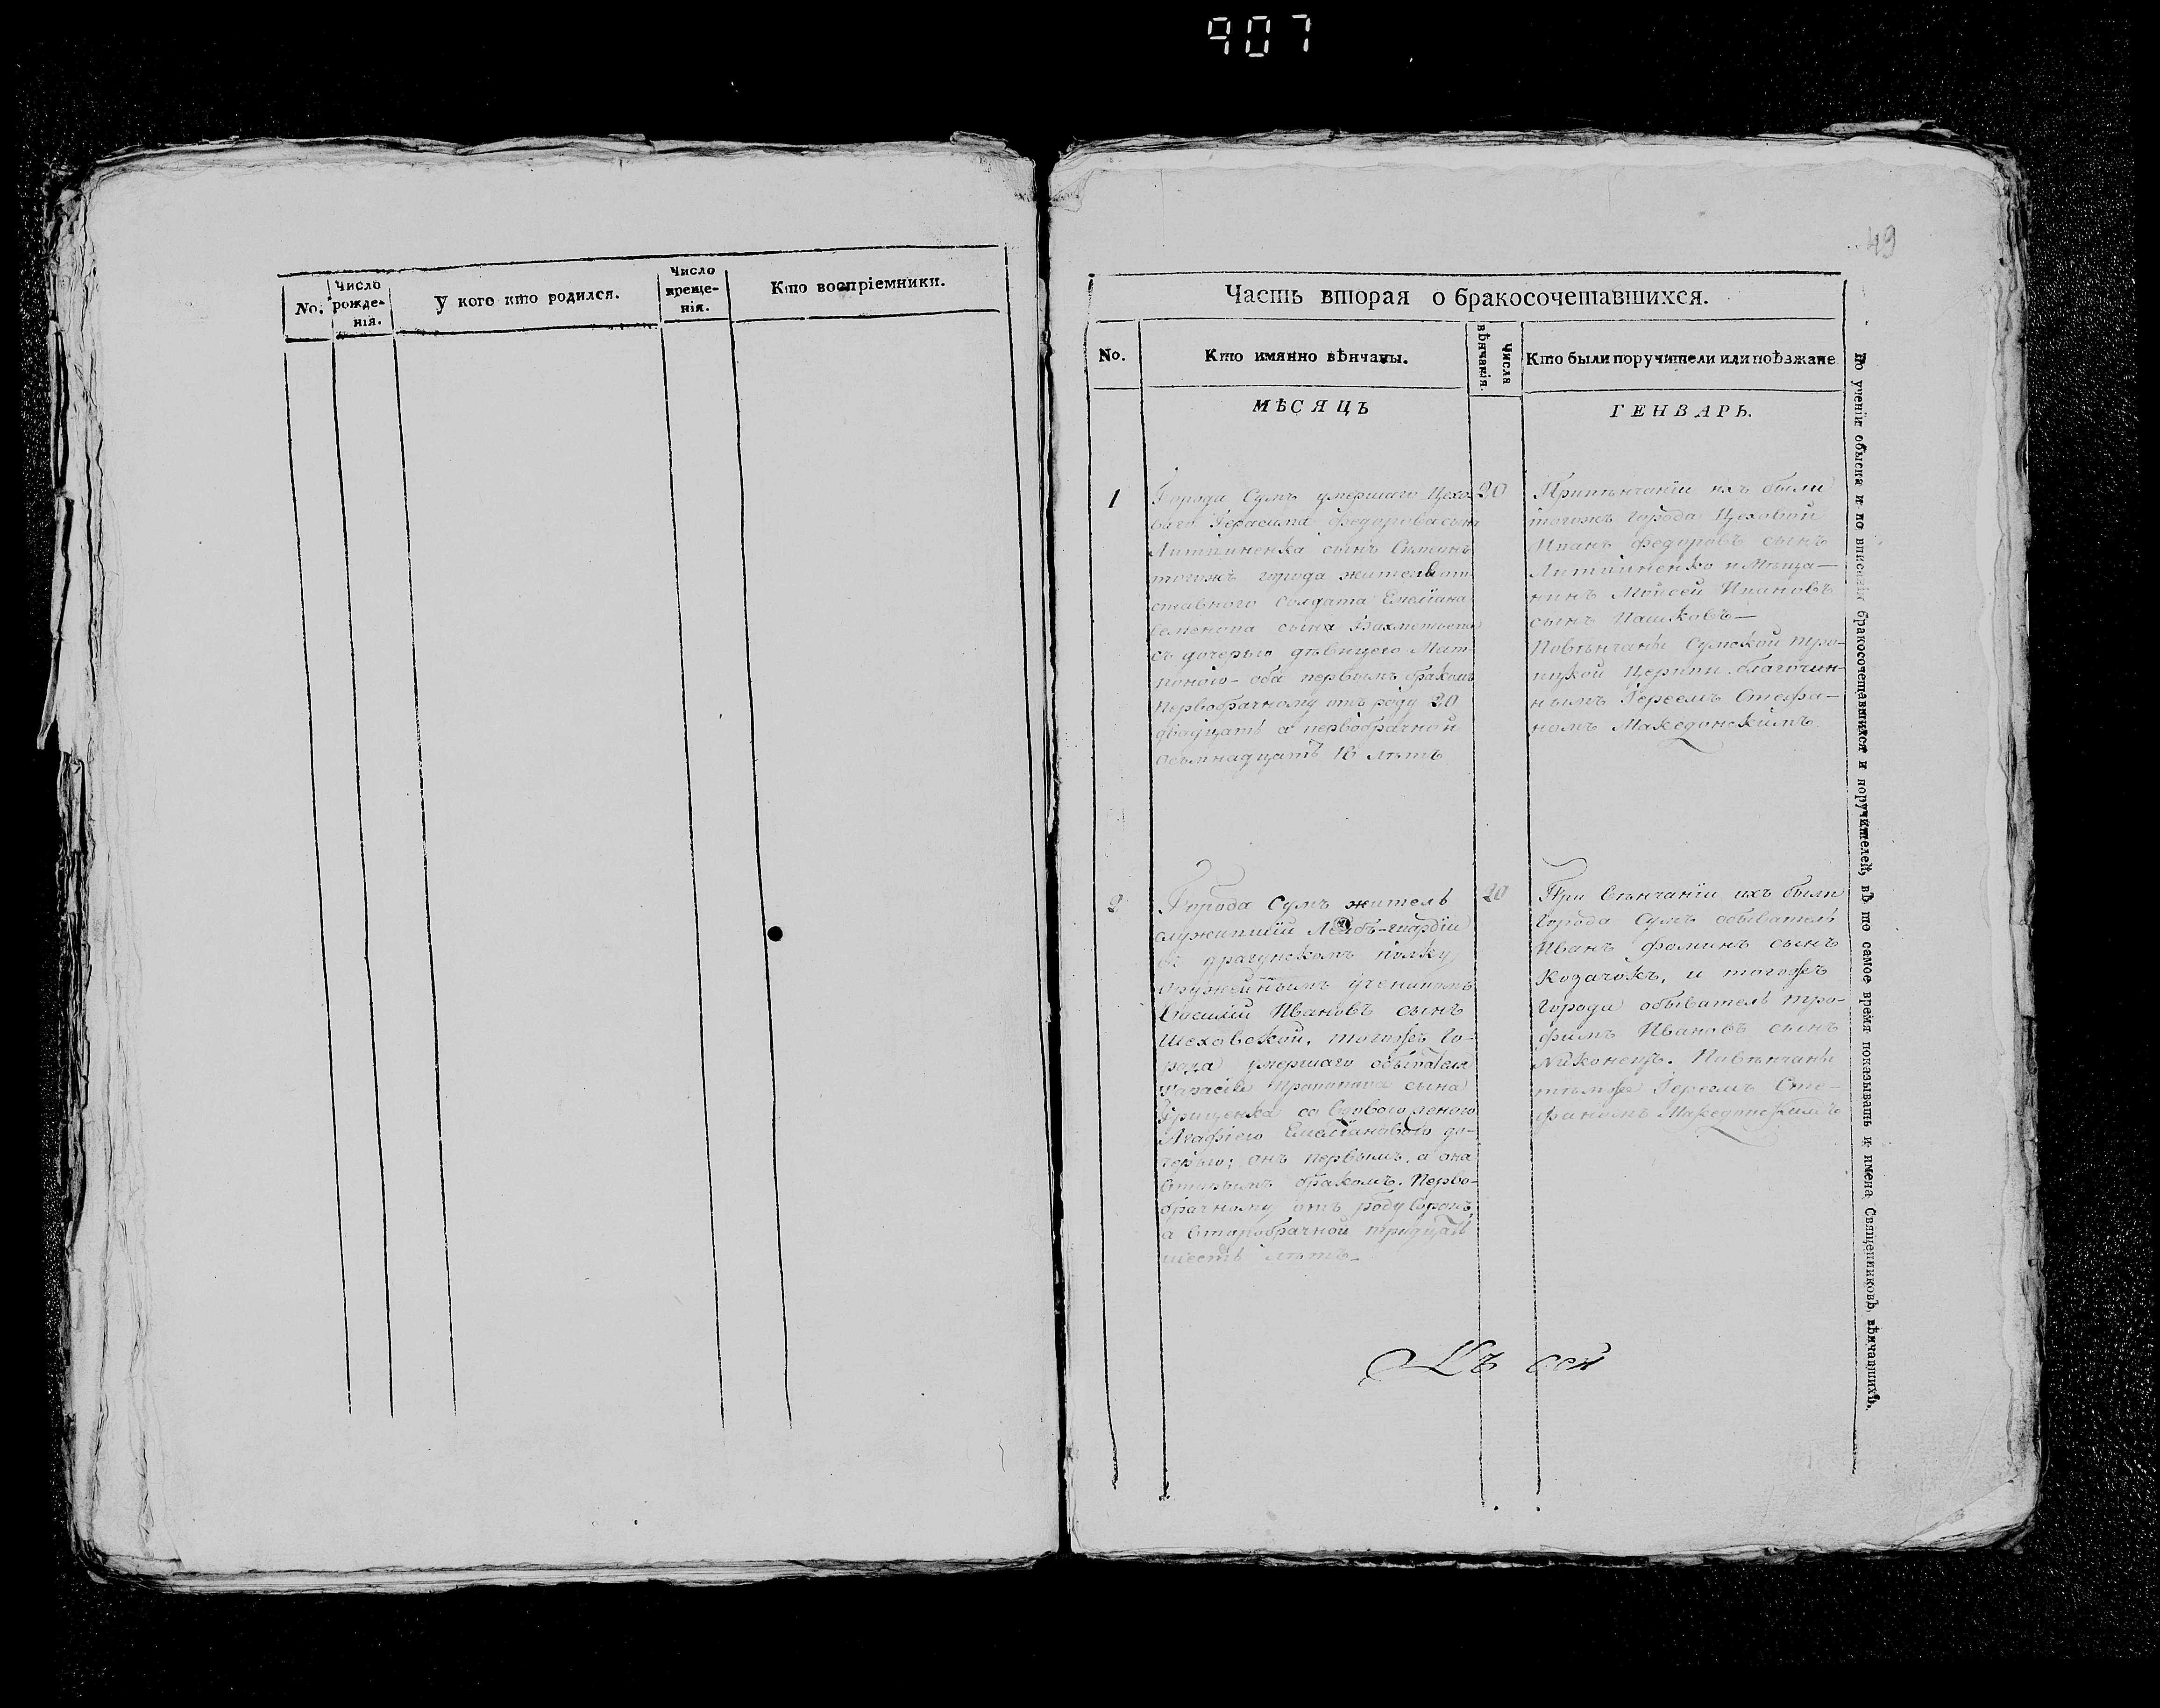 907
No.
Число рожде-
нія.
У кого кто родился.
Число
креще-
нія.
Кто воспріемники.
49
Часть вторая о бракосочетавшихся.
No.
Кто имянно вѣнчаны.
Числа
вѣнчанія.
Кто были поручители или поѣзжане
МѢСЯЦЪ
ГЕНВАРЬ.
1
Города Сумъ умершаго Цехо-
ваго Герасима Федорова сына
Литвиненка сынъ
тогожъ города жителя от
ставного солдата Емеліана
Семенова сына
съ дочерью дѣвицею Мат
роною - оба первымъ бракомъ
Первобрачному отъ роду 20
двадцать а первобрачной
осьмнадцать 18 лѣтъ
20
При вѣнчаніи ихъ были
тогожъ города Цеховой
Иванъ Федоровъ сынъ
Литвиненко и Мѣща-
нинъ Мойсей Ивановъ
сынъ Пашковъ-
Повѣнчаны Сумской Тро-
ицкой Церкви благочин-
нымъ Іереемъ Стефа-
номъ Македонскимъ
2
Города Сумъ житель
служившій Лейбъ-гвардіи
въ драгунскомъ полку
оружейнымъ ученикомъ
Василій Ивановъ сынъ
Шеховской, тогожъ го-
рода умершаго обывателя
Тарасія сына
Гриценка со вдовою женою
Агафіею Емеліановою до-
черью; онъ первымъ, а она
вторымъ бракомъ. Перво-
брачному отъ роду сорокъ,
а второбрачной тридцать
шесть лѣтъ
20
При вѣнчаніи ихъ были
города Сумъ обыватель
Иванъ Фоминъ сынъ
Козачокъ, и тогожъ
города обыватель Тро-
фимъ Ивановъ сынъ
Никонецъ. Повѣнчаны
тѣмже Іереемъ Сте-
фаномъ Македонскимъ
Къ сей
По учении обыска и по вписаніи бракосочетавшихся и поручителей, въ то самое время показывать и имена Священниковъ, вѣнчавшихъ.